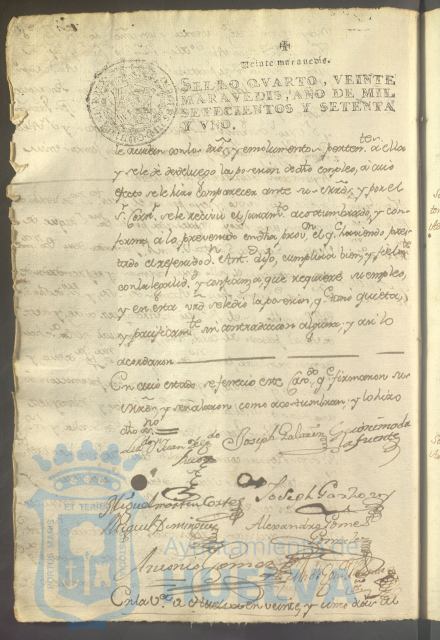 Veinte maravedis.
SELLO QVARTO, VEINTE
MARAVEDIS, AÑO DE MIL
SETECIENTOS Y SETENTA
Y VNO.
le acudan con los dros, y emolumentos perten.tes a ello
y se le dé desde luego la posesion de dho empleo, a cuio
efecto se le hizo comparecer ante sus mrds, y por el
S.r Corr.r se le recivió el juram.to acostumbrado, y con
forme a lo prevenido en dha prov.on el q haviendo pres
tado el referido d. Ant.o dijo, cumplirá bien, y fielm.te
con la legalid.d y confianza, que requiere su empleo,
y en esta vrd se le dió la posesion, q tomó quieta,
y pacificam.te sin contradiccion alguna, y así lo
acordaron
En cuio estado se feneció este Cavdo, q firmaron sus
mrds, y señalaron como acostumbran, y lo hizo
dho
Joseph Galarin
Lafuente
Miguel Cortes
Joseph Garzon
Miguel Dominguez
Alexandro Gomez
Antonio Gomez
En la V.a de Huelva en veinte, y uno dias del
PORTUS MARIS
ET TERRAE
CUSTODIA
Ayuntamiento de
HUELVA